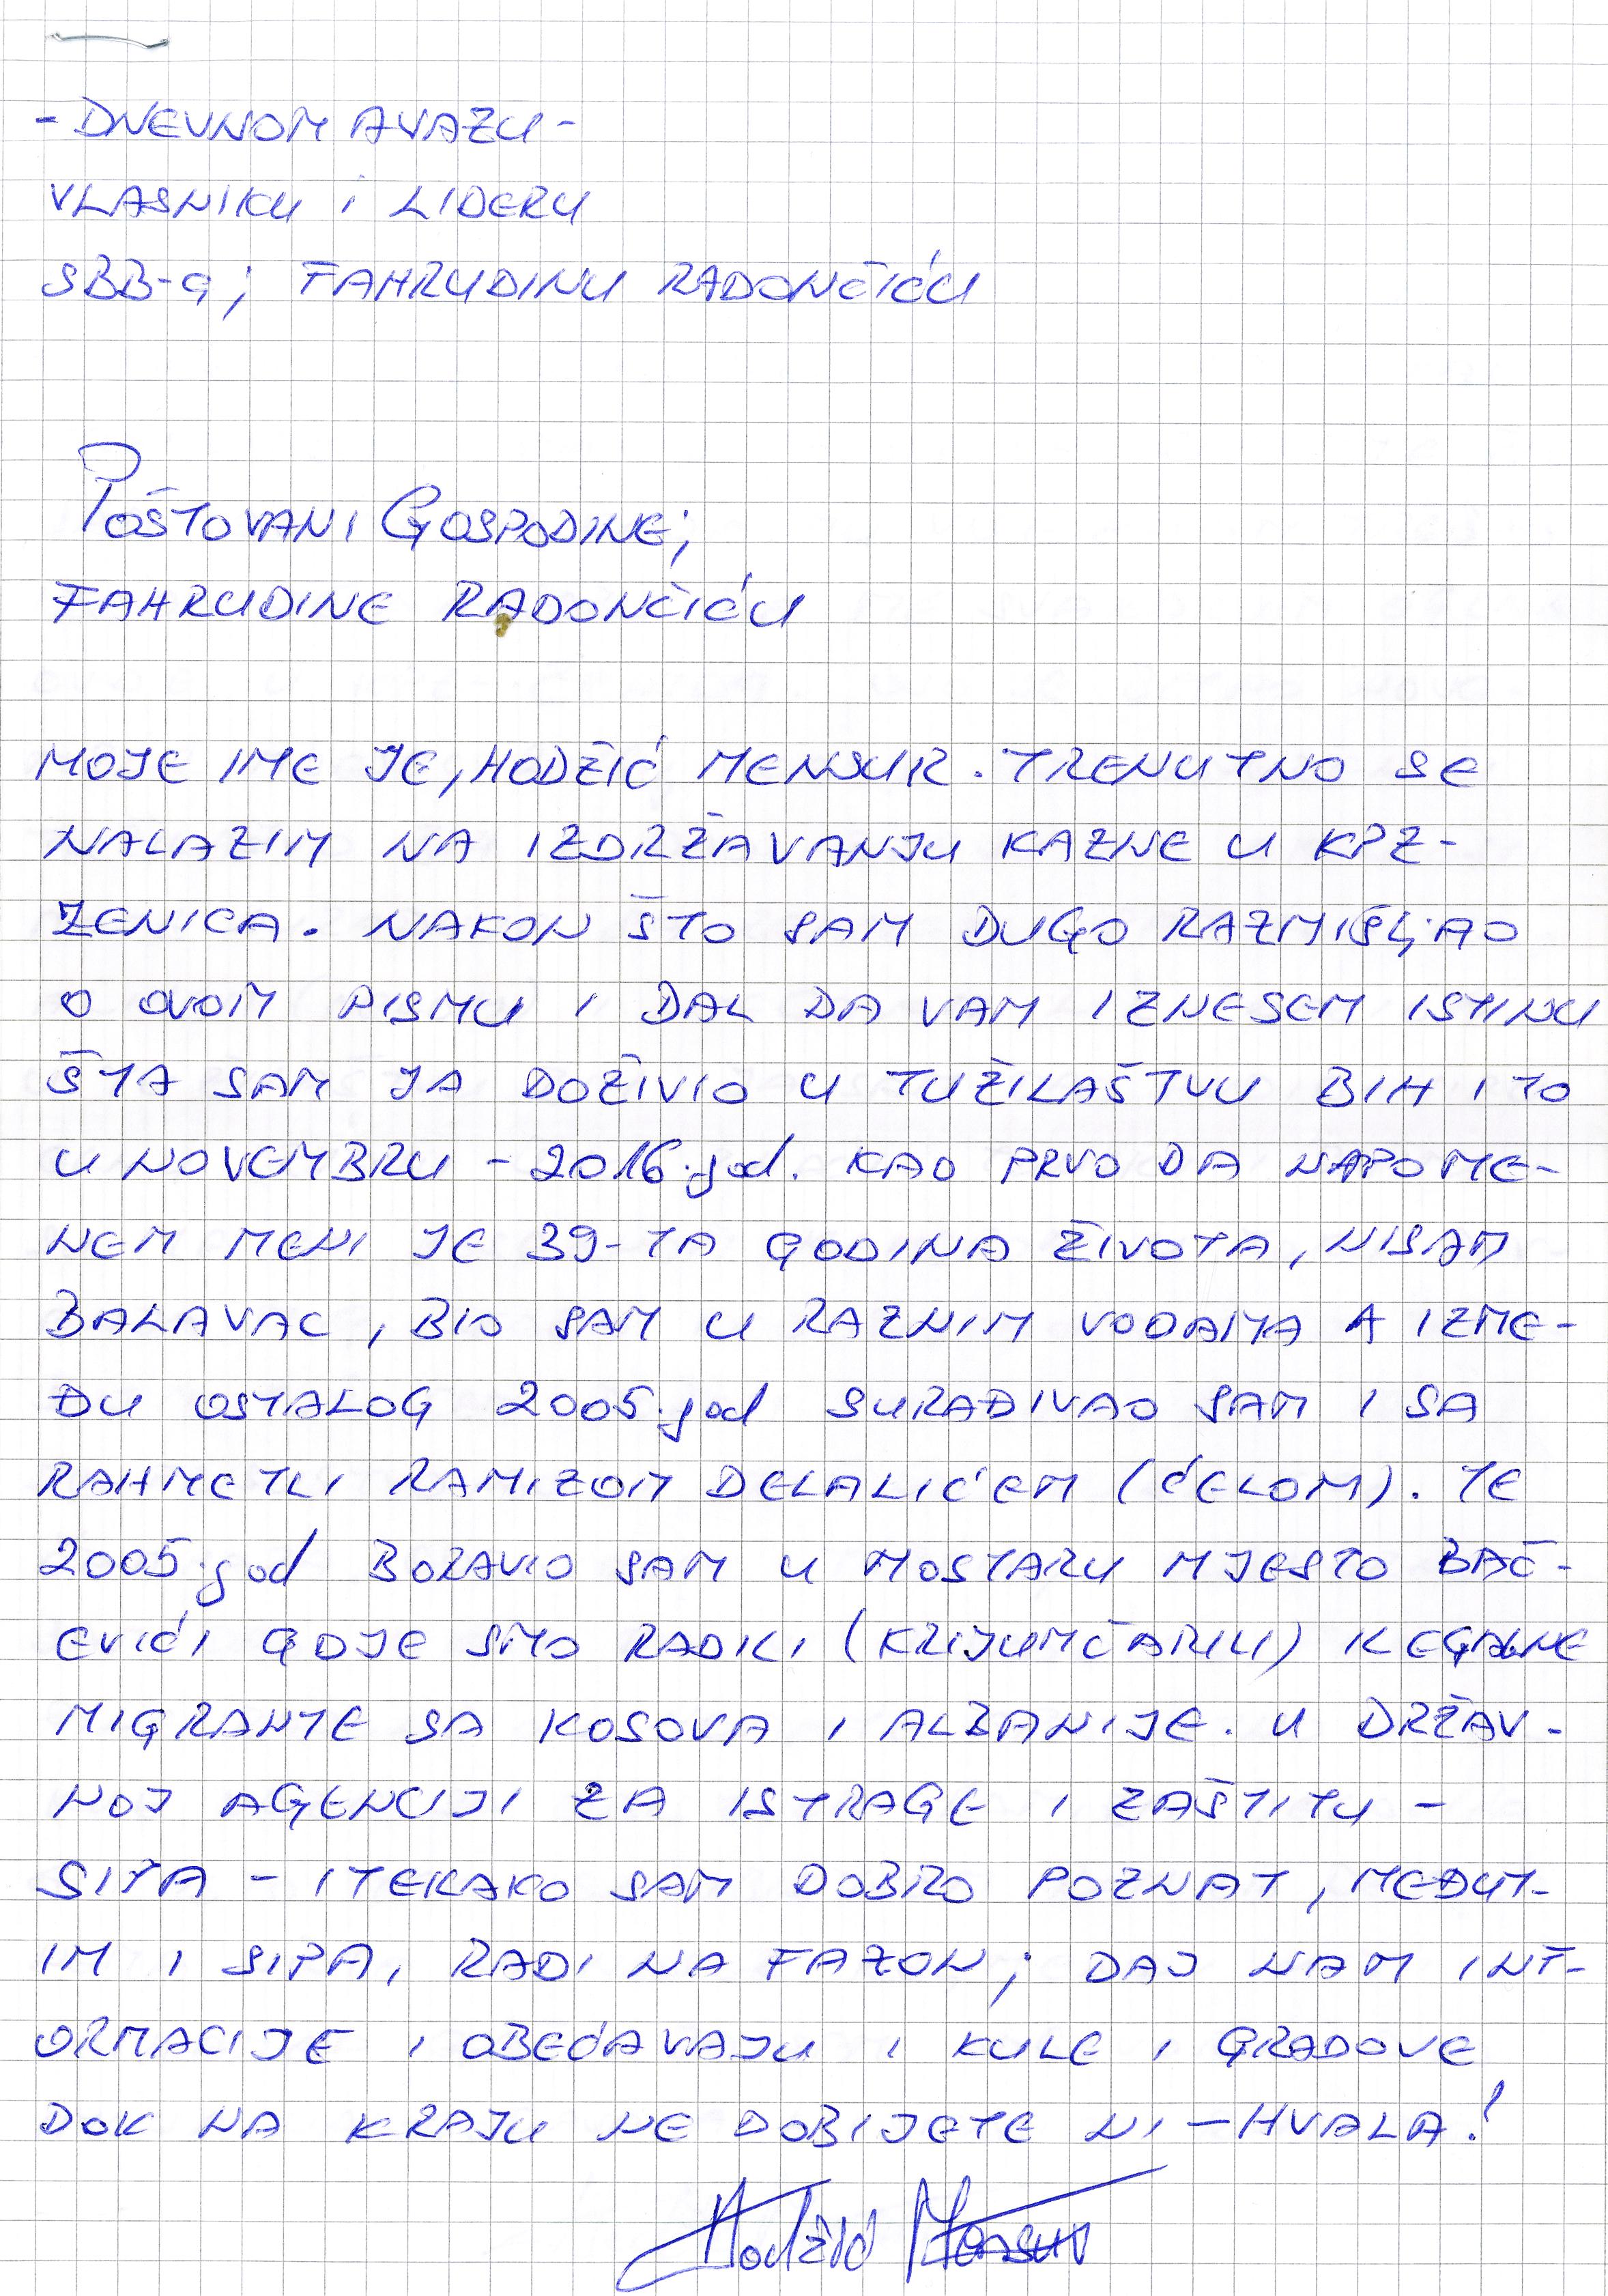 - DNEVNOM AVAZU -
VLASNIKU I LIDERU
SBB-a; FAHRUDINU RADONČIĆU
POŠTOVANI GOSPODINE;
FAHRUDINE RADONČIĆU
MOJE IME JE, HODŽIĆ MENSUR. TRENUTNO SE
NALAZIM NA IZDRŽAVANJU KAZNE U KPZ-
ZENICA. NAKON ŠTO SAM DUGO RAZMIŠLJAO
O OVOM PISMU I DAL DA VAM IZNESEM ISTINU
ŠTA SAM JA DOŽIVIO U TUŽILAŠTVU BIH I TO
U NOVEMBRU - 2016.god. KAO PRVO DA NAPOME-
NEM MENI JE 39-TA GODINA ŽIVOTA, NISAM
BALAVAC, BIO SAM U RAZNIM VODAMA A IZME-
ĐU OSTALOG 2005.god SURAĐIVAO SAM I SA
RAHMETLI RAMIZOM DELALIĆEM (ĆELOM). TE
2005.god BORAVIO SAM U MOSTARU MJESTO BAČ-
EVIĆI GDJE SMO RADILI (KRIJUMČARILI) ILEGALNE
MIGRANTE SA KOSOVA I ALBANIJE. U DRŽAV-
NOJ AGENCIJI ZA ISTRAGE I ZAŠTITU -
SIPA - ITEKAKO SAM DOBRO POZNAT, MEĐUT-
IM I SIPA, RADI NA FAZON; DAJ NAM INF-
ORMACIJE I OBEĆAVAJU I KULE I GRADOVE
DOK NA KRAJU NE DOBIJETE NI - HVALA!
Hodžić Mensur